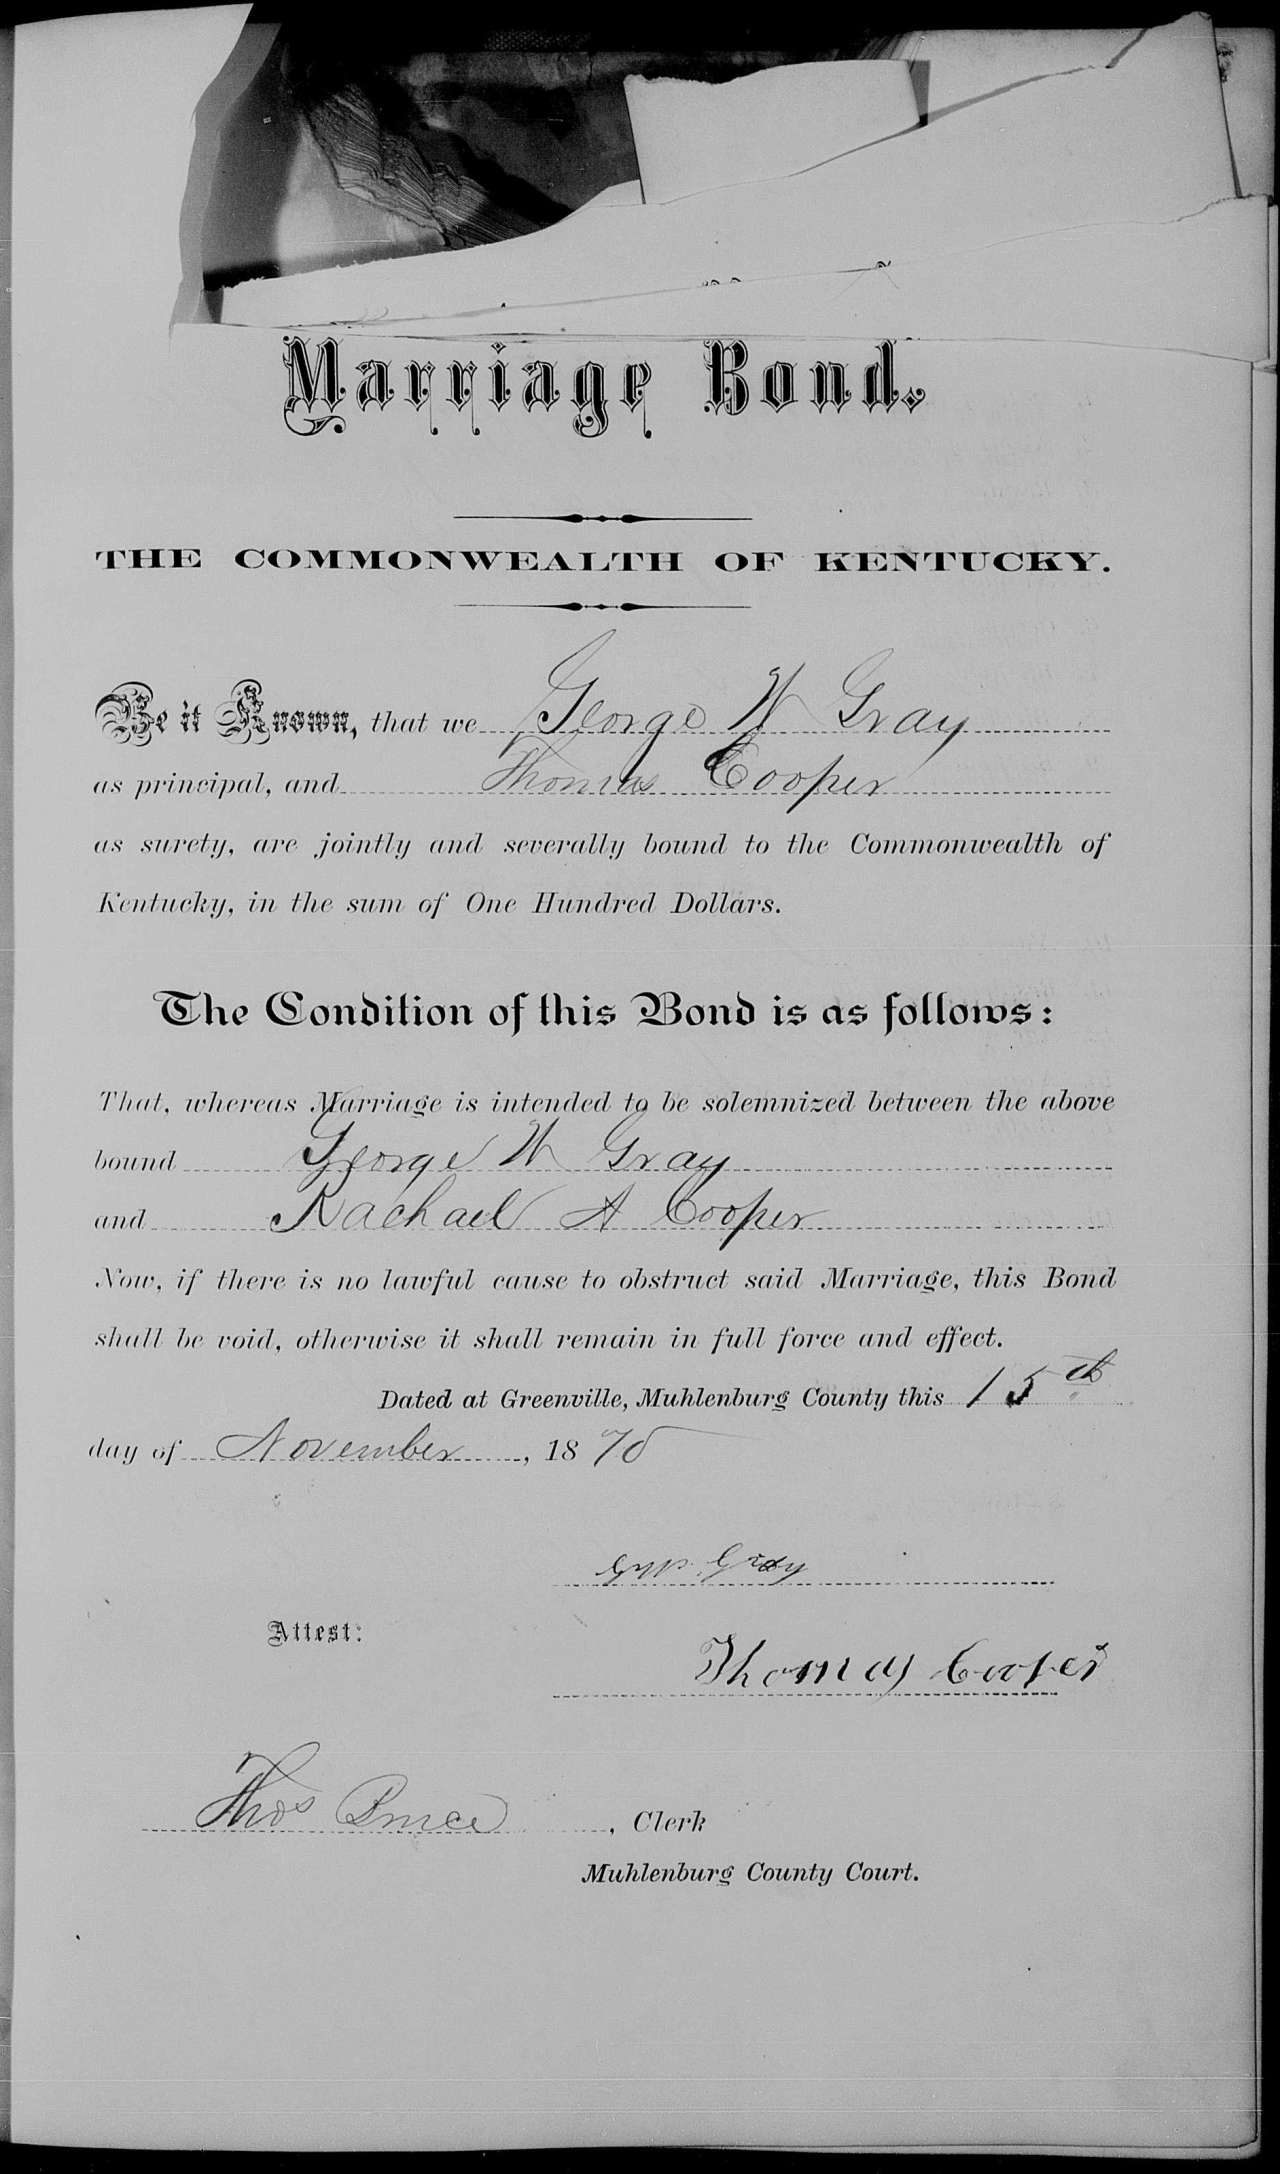 Marriage Bond.
THE COMMONWEALTH OF KENTUCKY.
Be it Known, that we George W Gray
as principal, and Thomas Cooper
as surety, are jointly and severally bound to the Commonwealth of
Kentucky, in the sum of One Hundred Dollars.
The Condition of this Bond is as follows:
That, whereas Marriage is intended to be solemnized between the above
bound George W Gray
and Rachael A Cooper
Now, if there is no lawful cause to obstruct said Marriage, this Bond
shall be void, otherwise it shall remain in full force and effect.
Dated at Greenville, Muhlenburg County this 15th
day of November, 18
Gray
Attest:
Thomas Cooper
Thos Bruce, Clerk
Muhlenburg County Court.